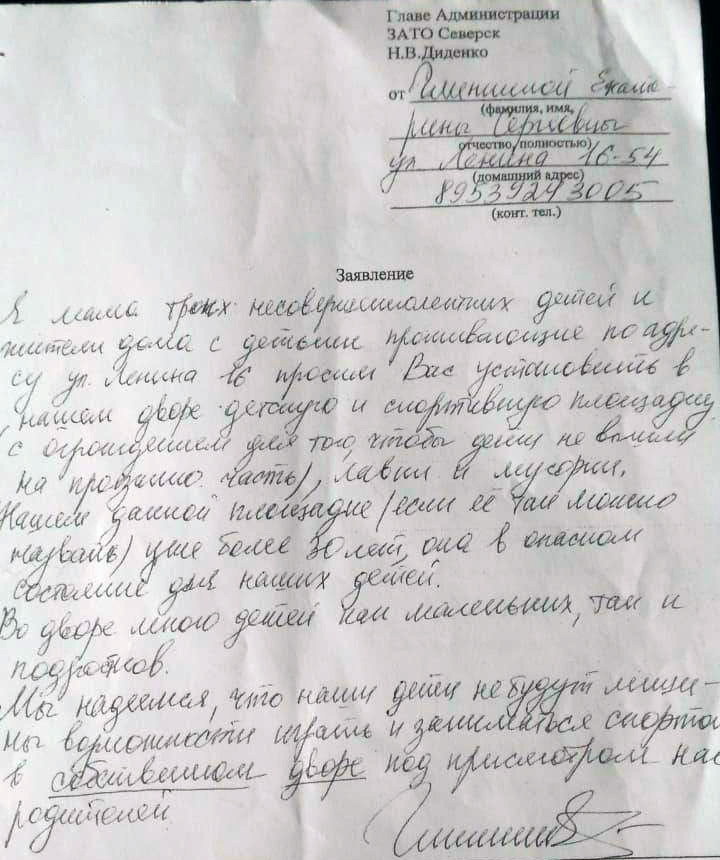 Главе Администрации
ЗАТО Северск
Н.В.Диденко
от Екате-
(фамилия, имя,
рины Сергеевны
отчество, полностью)
ул Ленина 16-54
(домашний адрес)
89539243005
(конт. тел.)
Заявление
Я мама троих несовершеннолетних детей и
жители дома с детьми проживающие по адре-
су ул. Ленина 16 просим Вас установить в
нашем дворе детскую и спортивную площадку
(с ограждением для того, чтобы дети не вышли
на проезжую часть), лавки и мусорки.
Нашей данной площадке (если её так можно
назвать) уже более 30 лет, она в опасном
состояние для наших детей.
Во дворе много детей как маленьких, так и
подростков.
Мы надеемся, что наши дети не будут лише-
ны возможности играть и заниматься спорто
в собственном дворе под присмотром нас
родителей.